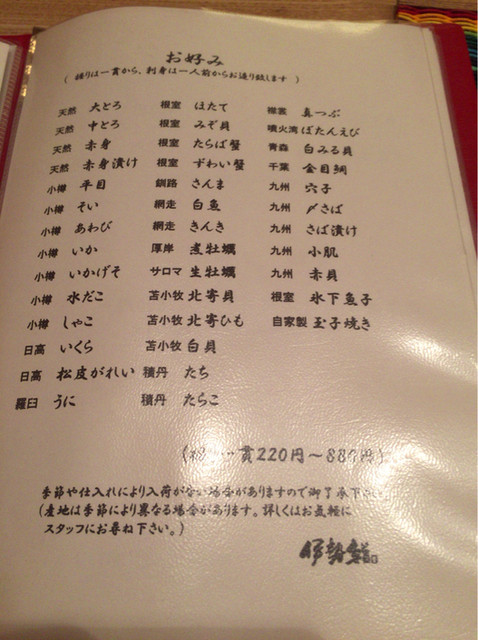 お好み
( 握りは一貫から、刺身は一人前からお造り致します )
天然 大とろ 根室 ほたて 襟裳 真つぶ
天然 中とろ 根室 みぞ貝 噴火湾 ぼたんえび
天然 赤身 根室 たらば蟹 青森 白みる貝
天然 赤身漬け 根室 ずわい蟹 千葉 金目鯛
小樽 平目 釧路 さんま 九州 穴子
小樽 そい 網走 白魚 九州 〆さば
小樽 あわび 網走 きんき 九州 さば漬け
小樽 いか 厚岸 煮牡蠣 九州 小肌
小樽 いかげそ サロマ 生牡蠣 九州 赤貝
小樽 水だこ 苫小牧 北寄貝 根室 氷下魚子
小樽 しゃこ 苫小牧 北寄ひも 自家製 玉子焼き
日高 いくら 苫小牧 白貝
日高 松皮がれい 積丹 たち
羅臼 うに 積丹 たらこ
一貫220円～880円)
季節や仕入れにより入荷がない場合がありますので御了承下さい。
(産地は季節により異なる場合があります。詳しくはお気軽に
スタッフにお尋ね下さい。)
伊勢鮨